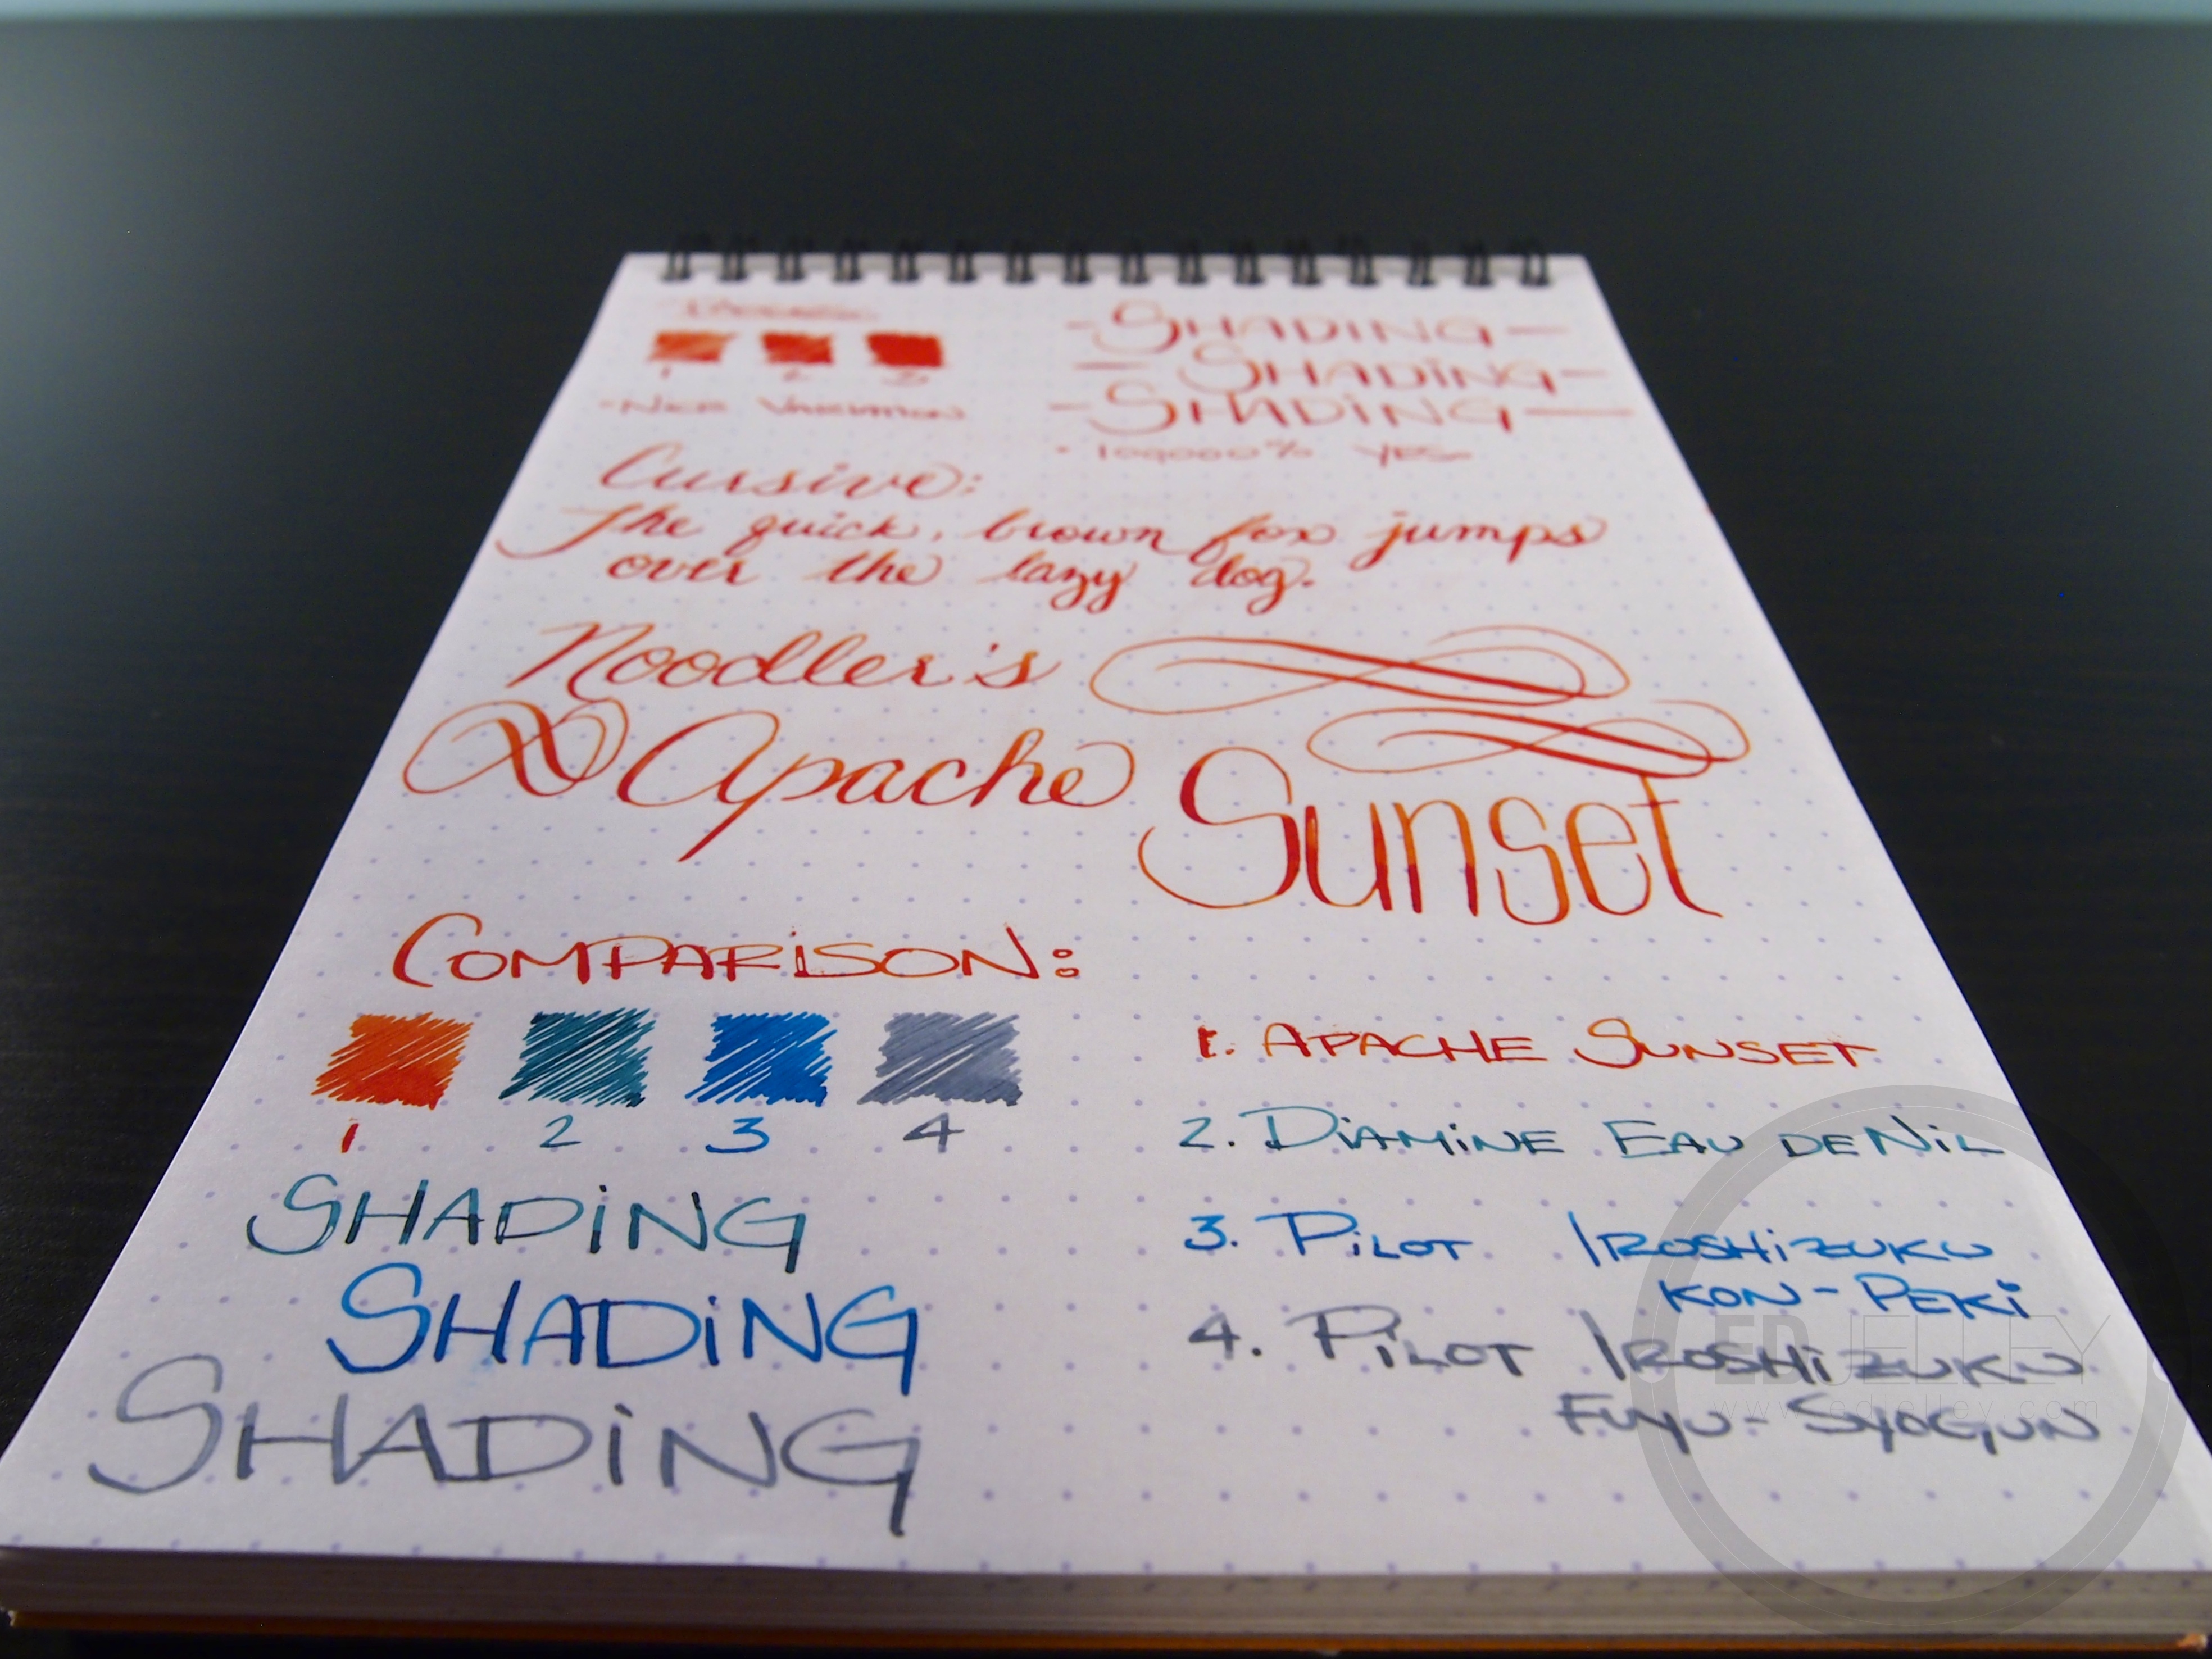 1 2 3
- Nice Variation
- SHADING -
- SHADING -
- SHADING -
· 109000% YES
Cursive:
The quick, brown fox jumps
over the lazy dog.
Noodler's
Apache
Sunset
COMPARISON:
1 2 3 4
SHADING
SHADING
SHADING
1. APACHE SUNSET
2. DIAMINE EAU DE NIL
3. PILOT IROSHIZUKU
KON-PEKI
4. PILOT IROSHIZUKU
FUYU-SYOGUN
EDJELLEY
www.edjelley.com